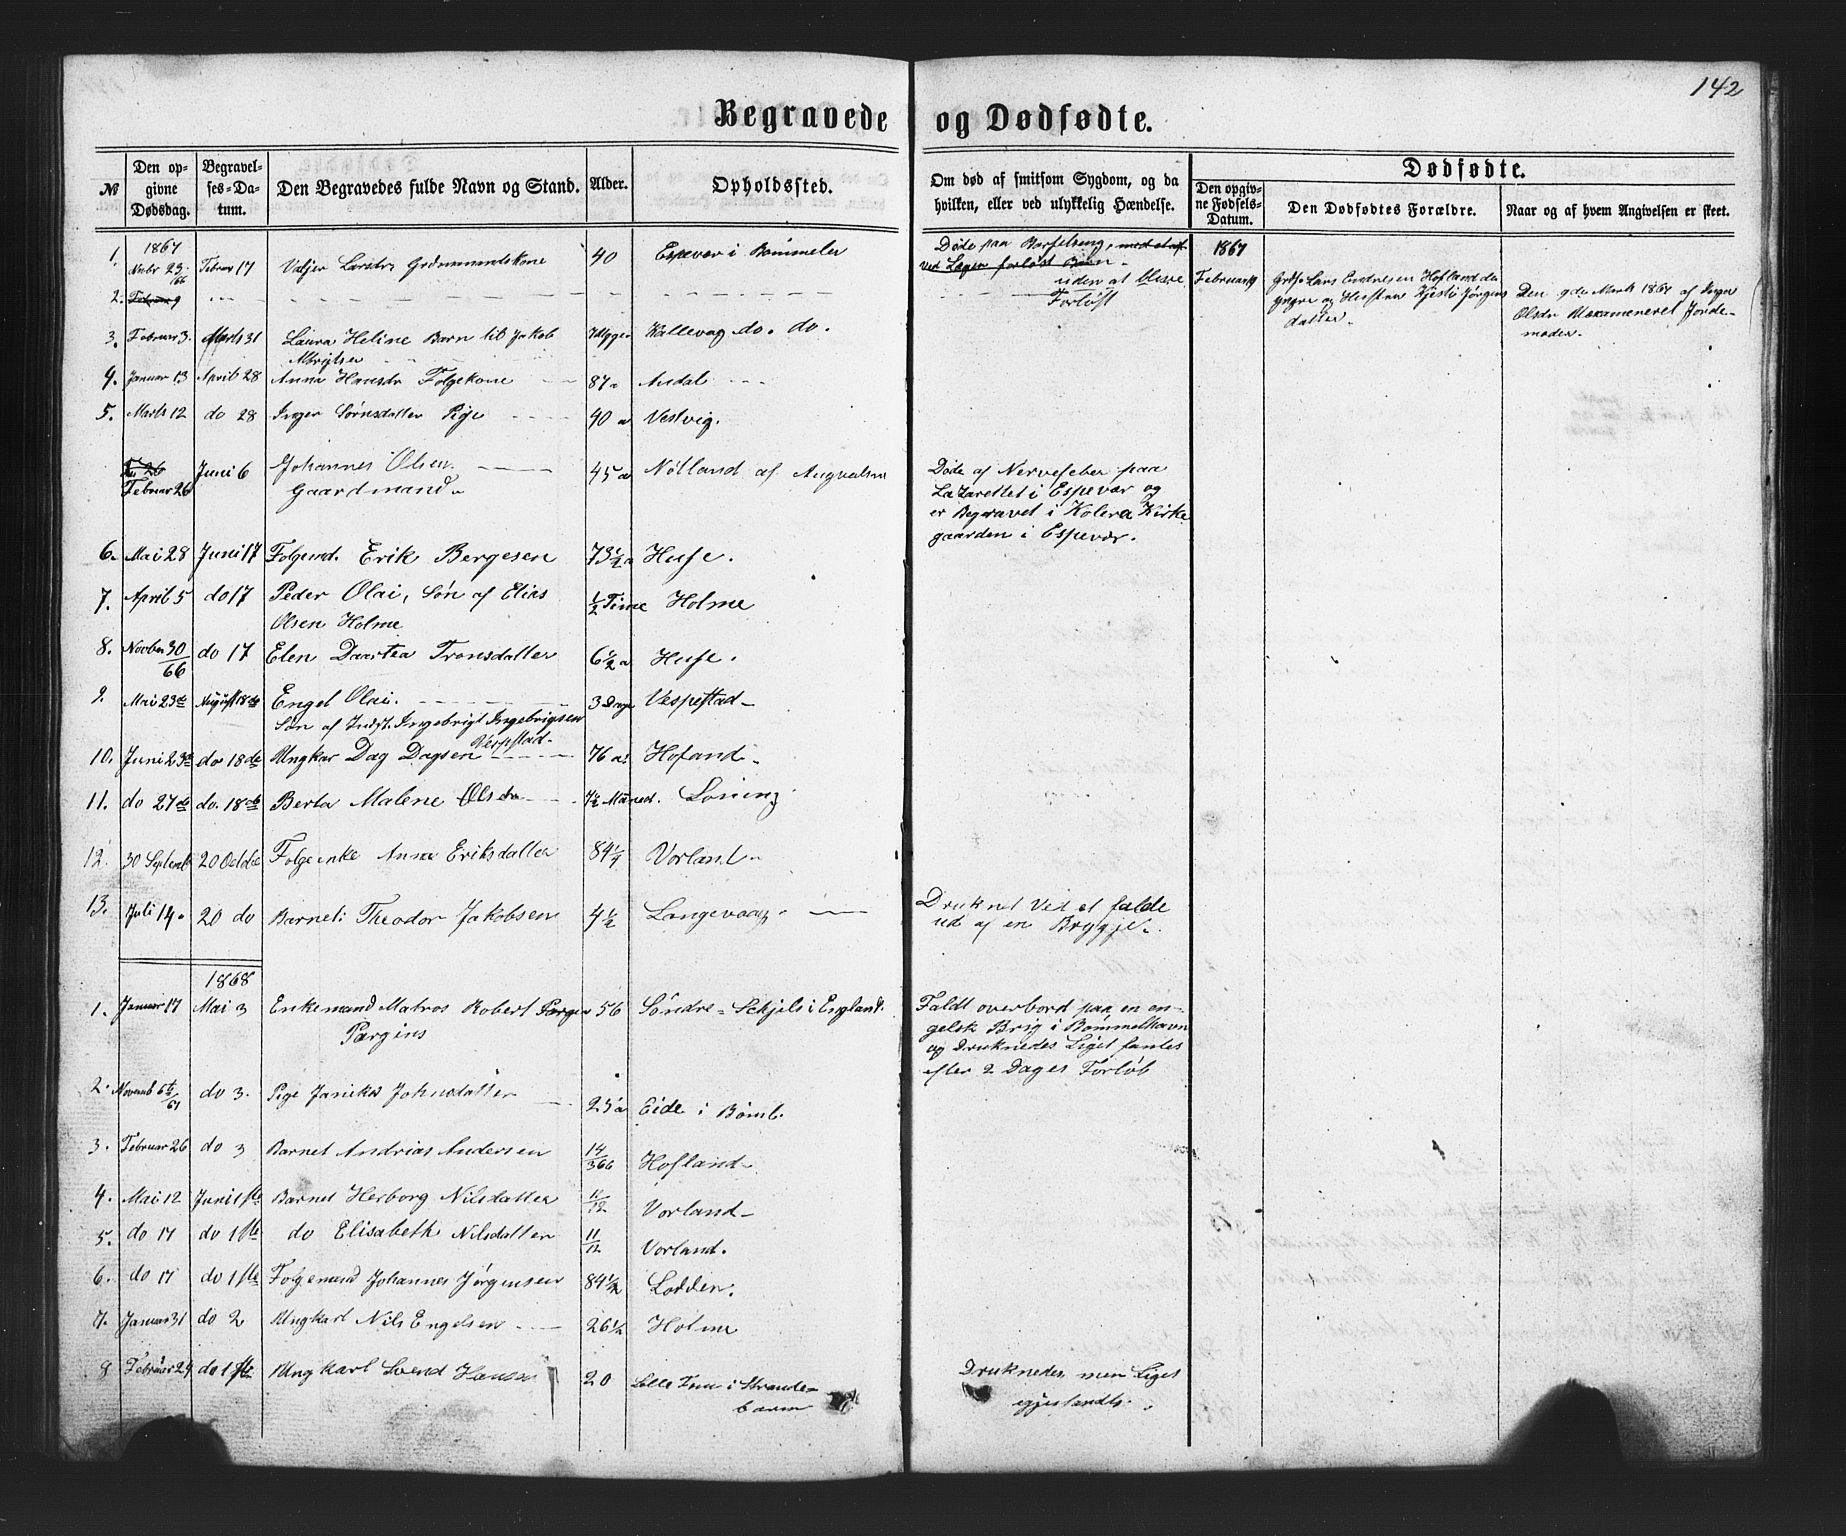 142
Begravede og Dødfødte.
№ Den opgivne Dødsdag. Begravelses=Datum. Den Begravedes fulde Navn og Stand. Alder. Opholdssted. Om død af smitsom Sygdom, og da hvilken, eller ved ulykkelig Hændelse. Dødfødte. Den opgivne Fødsels-Datum. Den Dødfødtes Forældre. Naar og af hvem Angivelsen er skeet.
1867 1867
1. Nvbr 23/66 Februar 17 Larsdr Grdmandskone 40 Espevær i Bømmelen Døde paa Barselseng, med at af
ved Lægen forløst Barn
uden at blive
Forløst
2. Februar 9 Februar 9 Grdfo Lars Endresen Hofland den
yngre og Hustru Kjesti Jørgens
datter. Den 9de Marts 1867 af Inger
Olsdr Uexamineret Jorde-
moder.
3. Februar 3. Marts 31 Laura Heline Barn til Jakob 7 Uger Kallevag do. do.
4. Januar 13 April 28 Anna Hansdr Folgekone 87 a Andal
5. Marts 12 do 28 Inger Sørnsdatter Pige 40 a Vestvig.
Februar 26 Juni 6 Johannes Olsen 45 a Nøtland af
Gaardmand.
Døde af Nervefeber paa
Lazarettet i Espevær og
er Begravet i Kolera Kirke
gaarden i Espevær.
6. Mai 28 Juni 17 Folgemd. Erik Bergesen 73½ a Hufe.
7. April 5 do 17 Peder Olai, Søn af Elias ½ Time Holme
Olsen Holme
8. Novber 30/66 do 17 Elen Daartea Tronsdatter 6½ a Hufe.
9. Mai 23de August 18de Engel Olai. 3 Dage Vespestad
Søn af Indst. Ingebrigt Ingebrigsen
Vespestad
10. Juni 23de do 18de Ungkar Dag Dagsen 76 a. Hofland
11. do 27de do. 18de Berta Malene Olsdr 7½ Maaned. Løning
12. 30 Septemb 20 Octobe Folgeenke Anna Eriksdatter 84¼ Vorland
13. Juli 14. 20 do Barnet: Theodor Jakobsen 4½ Langevaag. Druknet Ved at falde
ud af en Brygje.
1868
1. Januar 17 Mai 3 Enkemand Matros Robert 56 Søndre=Schjels i England. Faldt overbord paa en en-
Pargins gelsk Brig i Bømmelhavn
og Druknedes Liget fantes
efter 2 Dages Forløb
2. Novemb 6te/67 do 3. Pige Janikk Johnsdatter 25 a Eide i Bømb.
3. Februar 26 do 3 Barnet Andrias Andersen 14/366 Hofland
4. Mai 12 Juni 1ste Barnet Herborg Nilsdatter 11/12 Vorland
5. do 17 do 1ste do Elisabeth Nilsdatter 11/12 Vorland.
6. do 17 do 1ste Folgemand Johannes Jørgensen 84½ Lodden.
7. Januar 31 do 2 Ungkarl Nils Engelsen 26½ Holme
8 Februar 24 do 1ste Ungkarl Svend Hansen 20 i Strande= Druknedes men Liget
barm igjenfandts.